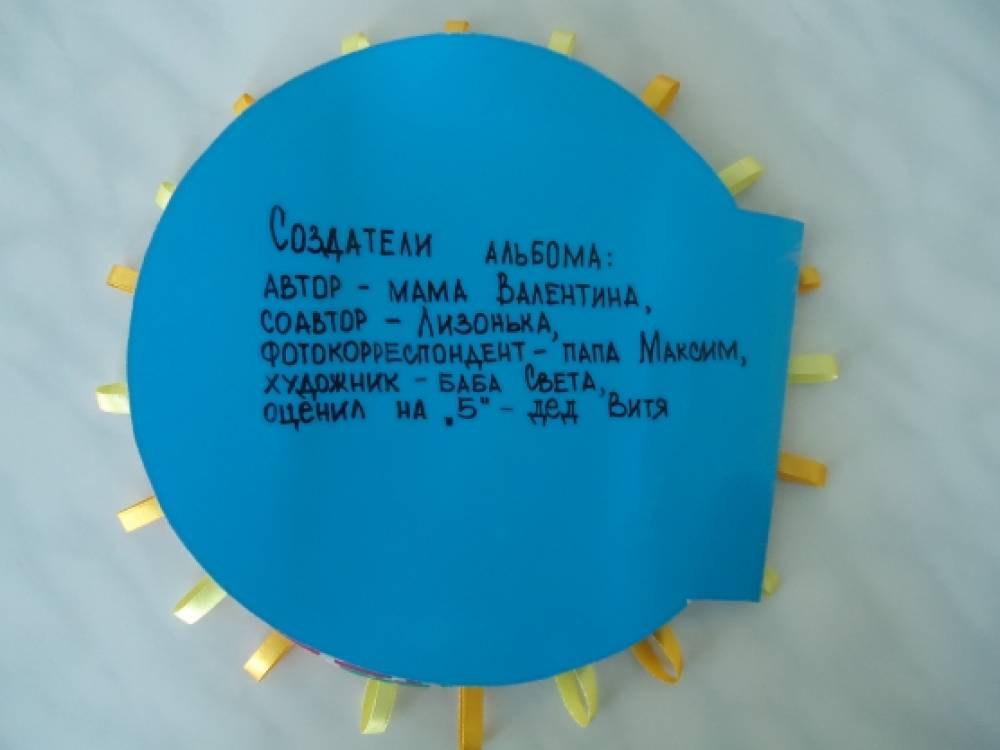 Создатели альбома:
автор - мама Валентина,
соавтор - Лизонька,
фотокорреспондент - папа Максим,
художник - баба Света,
оценил на „5" - дед Витя